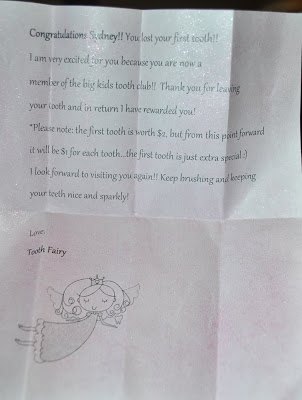 Congratulations Sydney!! You lost your first tooth!!
I am very excited for you because you are now a
member of the big kids tooth club!! Thank you for leaving
your tooth and in return I have rewarded you!
*Please note: the first tooth is worth $2, but from this point forward
it will be $1 for each tooth...the first tooth is just extra special :)
I look forward to visiting you again!! Keep brushing and keeping
your teeth nice and sparkly!
Love,
Tooth Fairy